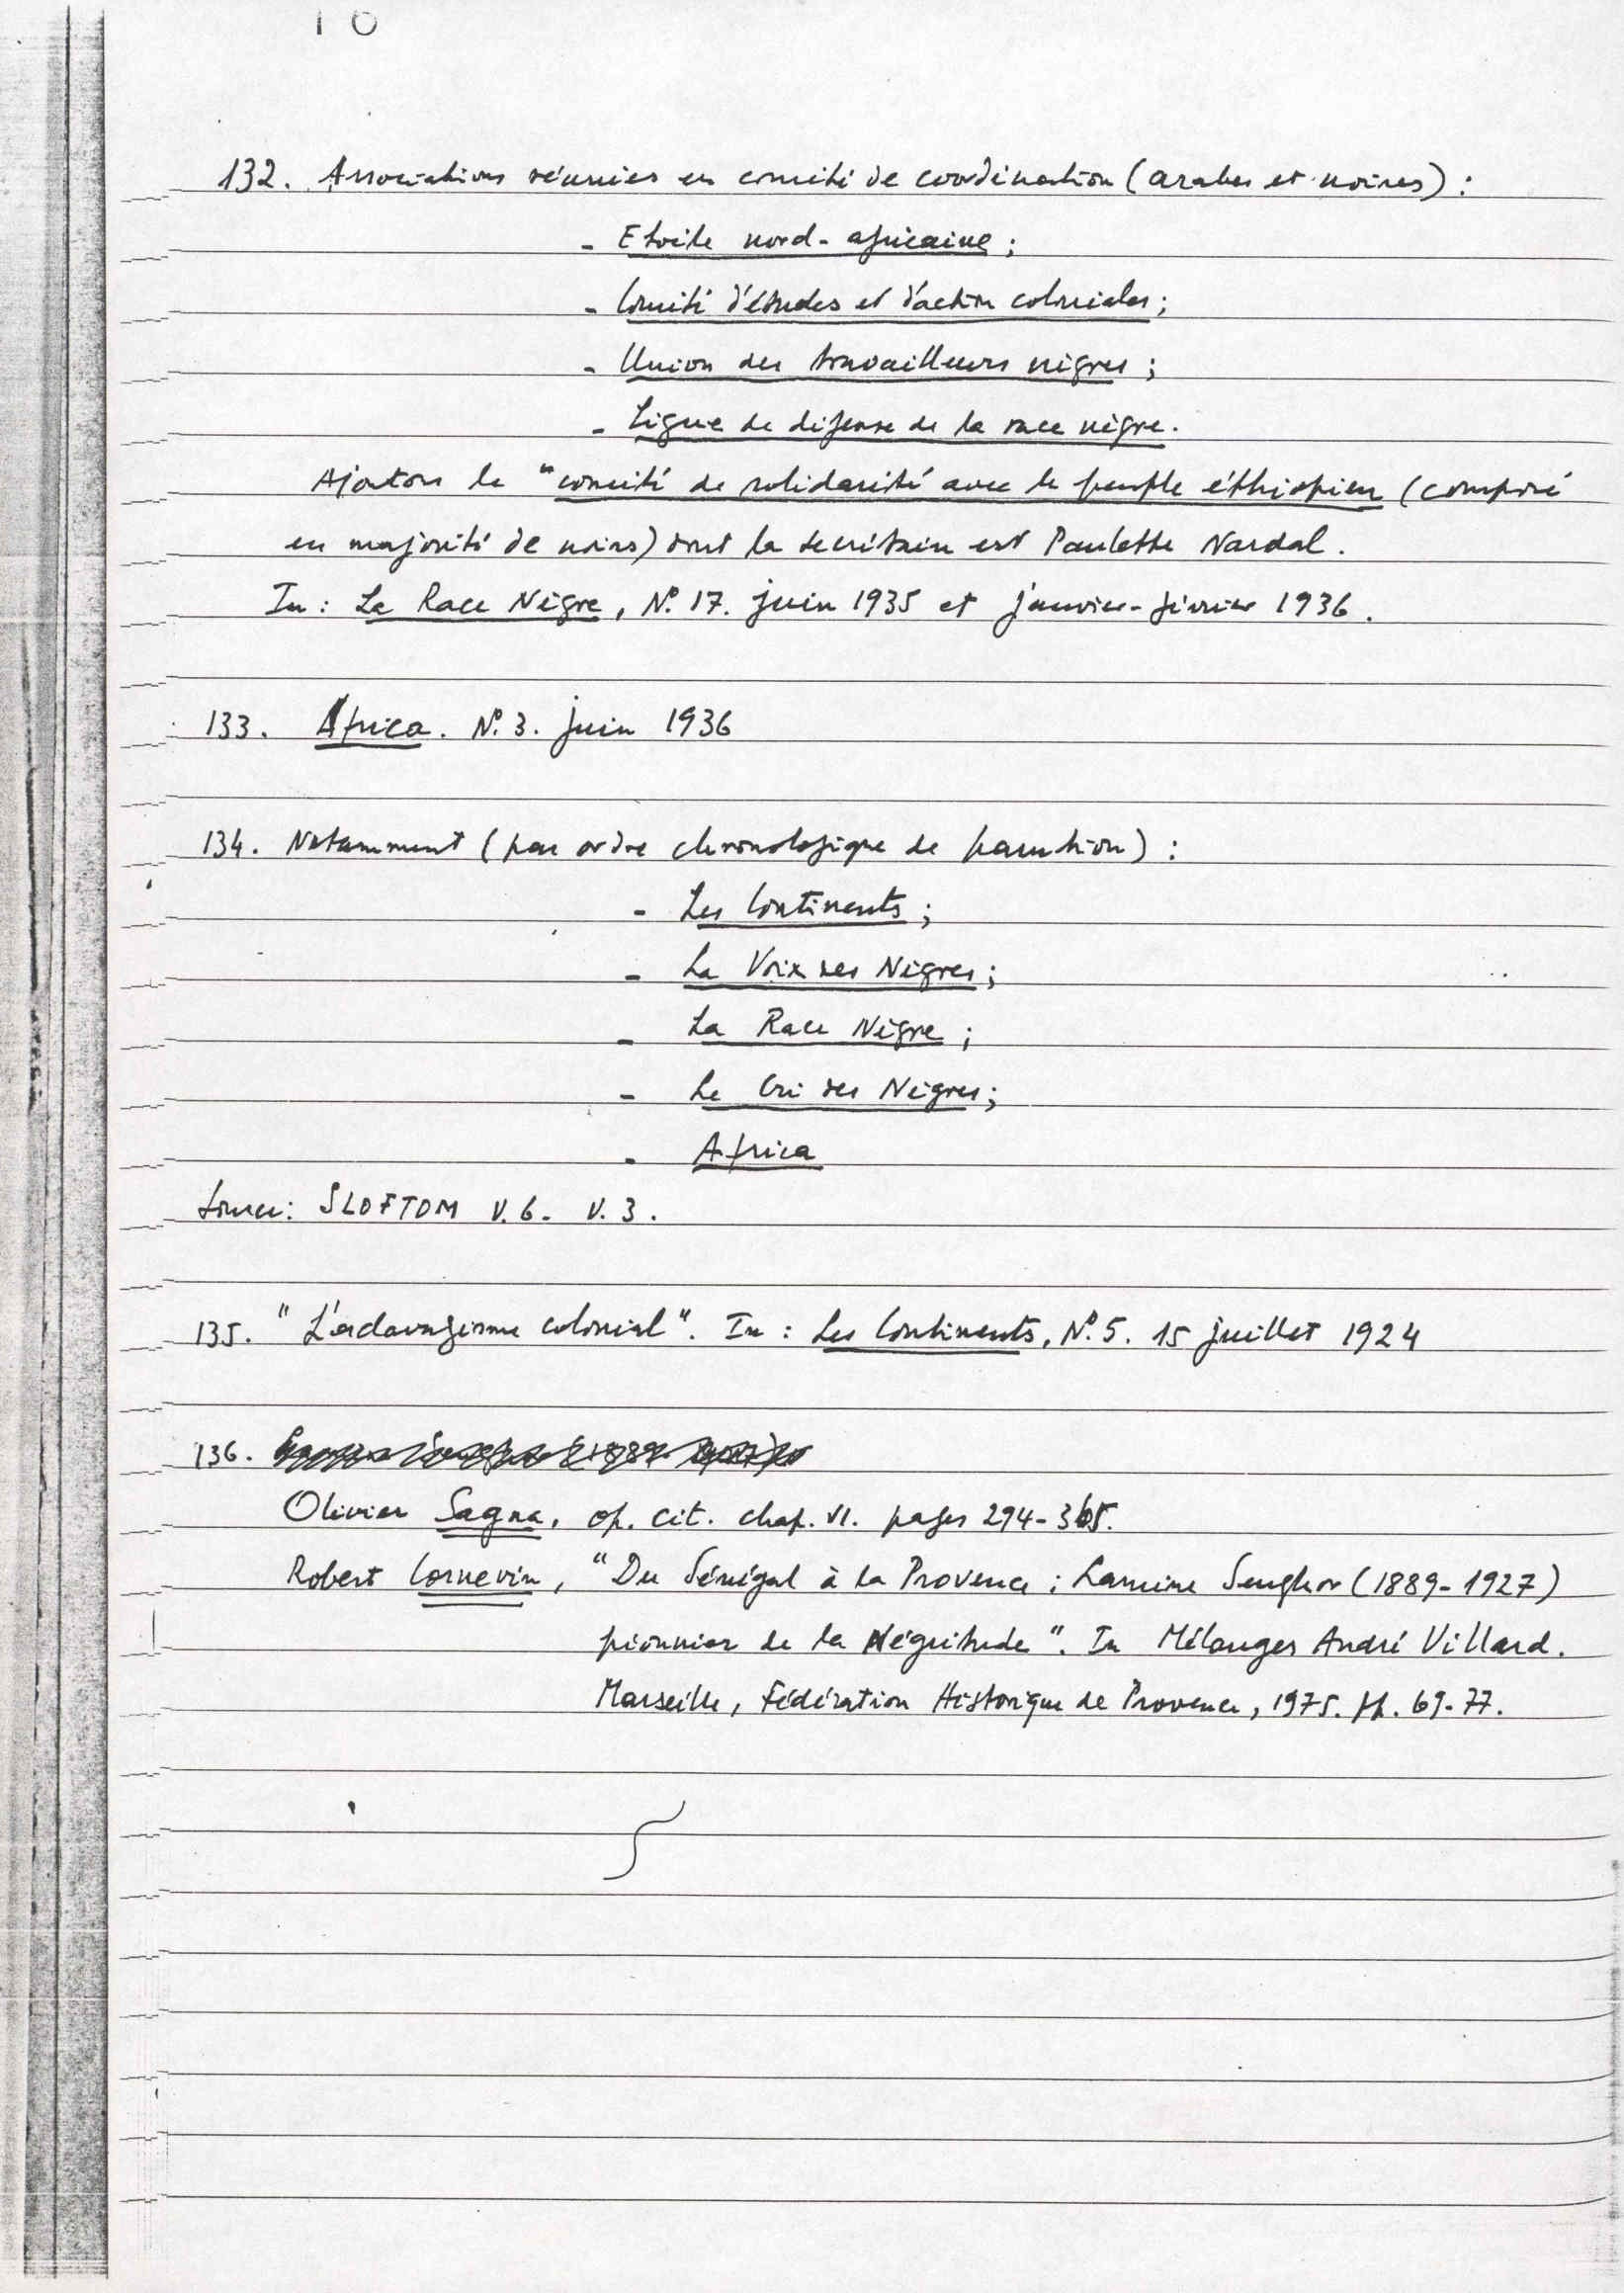 132. Associations réunies en comité de coordination (arabes et noires) :
- Etoile nord-africaine ;
- Comité d'études et d'action coloniales ;
- Union des travailleurs nègres ;
- Ligue de défense de la race nègre.
Ajoutons le "comité de solidarité avec le peuple éthiopien (composé
en majorité de noirs) dont la secrétaire est Paulette Nardal.
In : La Race Nègre, N° 17. juin 1935 et janvier-février 1936.
133. Africa. N° 3. juin 1936
134. Notamment (par ordre chronologique de parution) :
- Les Continents ;
- La Voix des Nègres ;
- La Race Nègre ;
- Le Cri des Nègres ;
- Africa
Source: SLOFTOM V.6. V.3.
135. "L'esclavagisme colonial". In : Les Continents, N° 5. 15 juillet 1924
136.
Olivier Sagna, op. cit. chap. VI. pages 294-
Robert Cornevin, "Du Sénégal à la Provence : Lamine Senghor (1889-1927)
pionnier de la Négritude". In Mélanges André Villard.
Marseille, Fédération Historique de Provence, 1975. pp. 69-77.